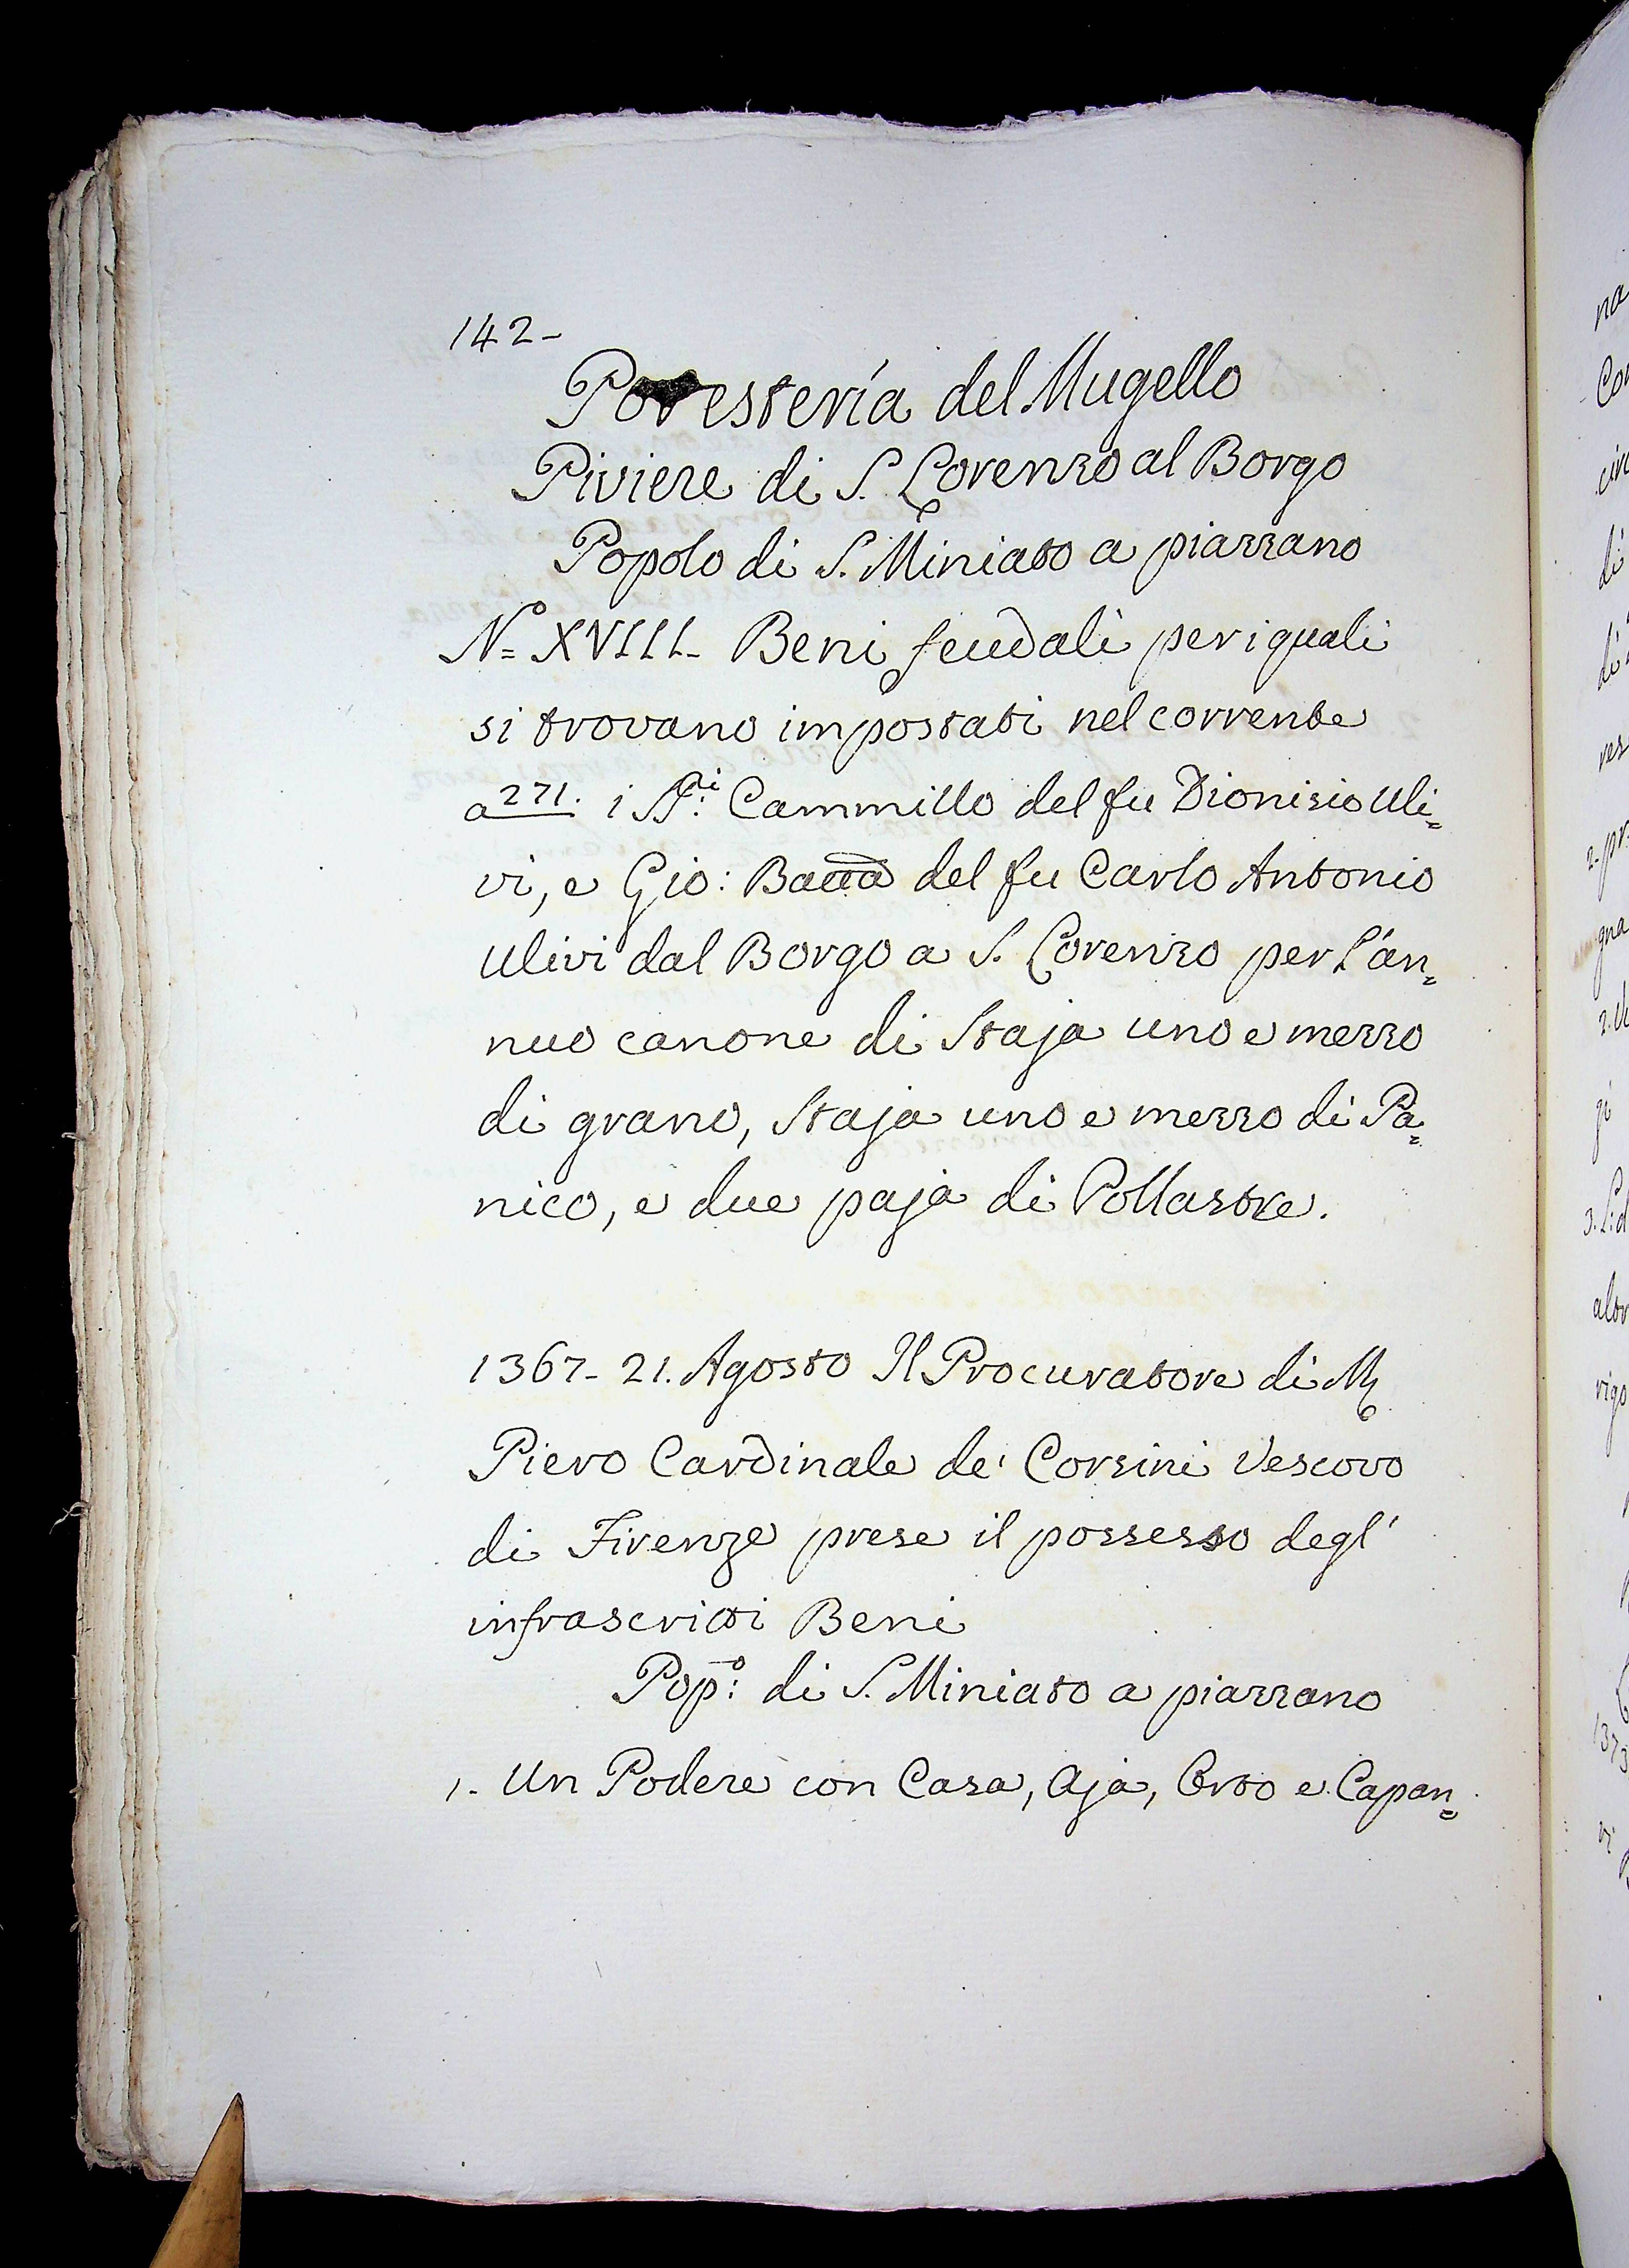 142-
Potesteria del Mugello
Piviere di S. Lorenzo al Borgo
Popolo di S. Miniato a piazzano
N.º XVIII- Beni feudali per i quali
si trovano impostati nel corrente
a 271. i SS.ri Cammillo del fu Dionisio Uli=
vi, e Gio: Batta del fu Carlo Antonio
Ulivi dal Borgo a S. Lorenzo per L'an=
nuo canone di Staja uno e mezzo
di grano, Staja uno e mezzo di Pa=
nico, e due paja di Pollastre.
1367- 21. Agosto Il Procuratore di M
Piero Cardinale de' Corsini Vescovo
di Firenze prese il possesso degl'
infrascritti Beni
Pop:º di S. Miniato a piazzano
1- Un Podere con Casa, Aja, Orto e Capan=